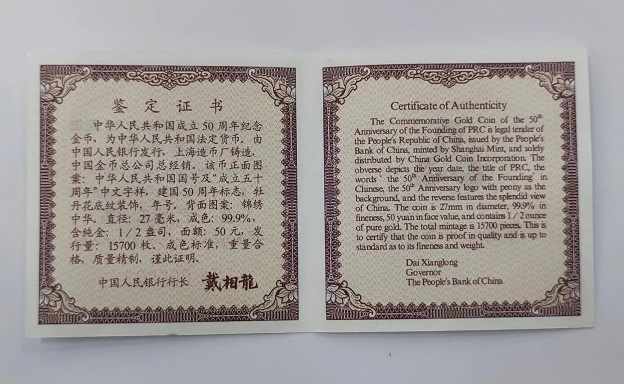 鉴定证书
中华人民共和国成立50周年纪念
金币,为中华人民共和国法定货币。由
中国人民银行发行,上海造币厂铸造,
中国金币总公司总经销。该币正面图
案:中华人民共和国国号及“成立五十
周年”中文字样,建国50周年标志,牡
丹花底纹装饰,年号。背面图案:锦绣
中华。直径:27毫米,成色:99.9%,
含纯金:1/2盎司,面额:50元,发
行量:15700枚。成色标准,重量合
格,质量精制,谨此证明。
中国人民银行行长 戴相龍
Certificate of Authenticity
The Commemorative Gold Coin of the 50th
Anniversary of the Founding of PRC is legal tender of
the People's Republic of China, issued by the People's
Bank of China, minted by Shanghai Mint, and solely
distributed by China Gold Coin Incorporation. The
obverse depicts the year date, the title of PRC, the
words " the 50th Anniversary of the Founding" in
Chinese, the 50th Anniversary logo with peony as the
background, and the reverse features the splendid view
of China. The coin is 27mm in diameter, 99.9% in
fineness, 50 yuan in face value, and contains 1/2 ounce
of pure gold. The total mintage is 15700 pieces. This is
to certify that the coin is proof in quality and is up to
standard as to its fineness and weight.
Dai Xianglong
Governor
The People's Bank of China